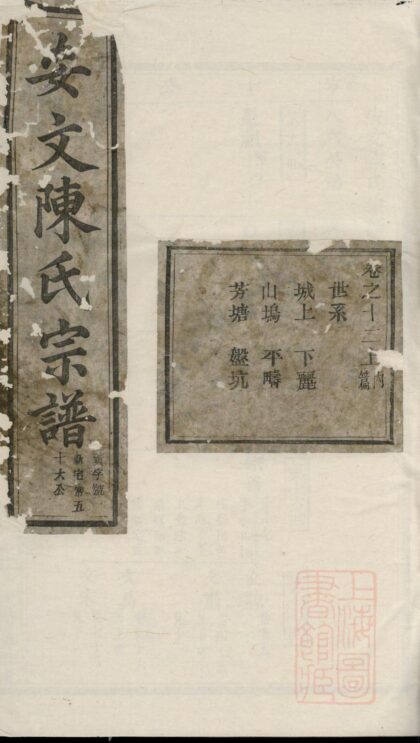 安文陳氏宗譜
字號
新宅常五
十大公
卷之十二上 內篇
世系
城上 下麗
山塢 平疇
芳塘 盤坑
上海圖
書館藏